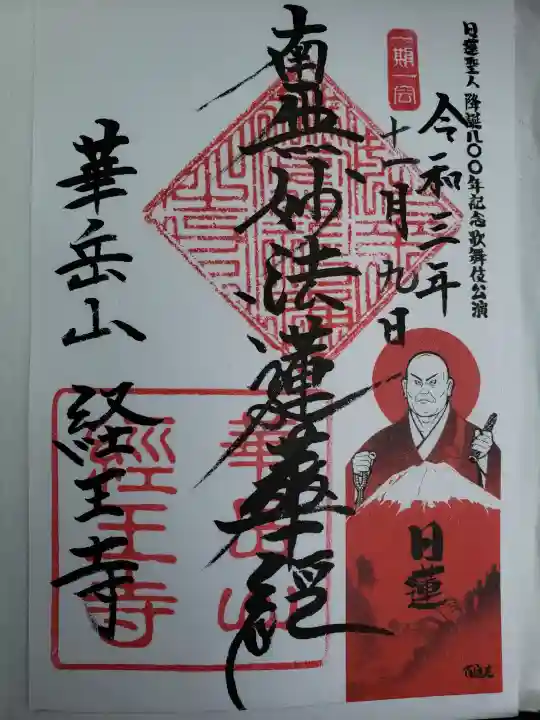 日蓮聖人降誕八〇〇年記念歌舞伎公演
一期一会
令和三年
十一月十九日
南無妙法蓮華経
華岳山 経王寺
華岳山
經王寺
日蓮